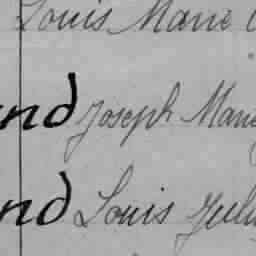 Louis Marie
nd Joseph Marie
nd Louis